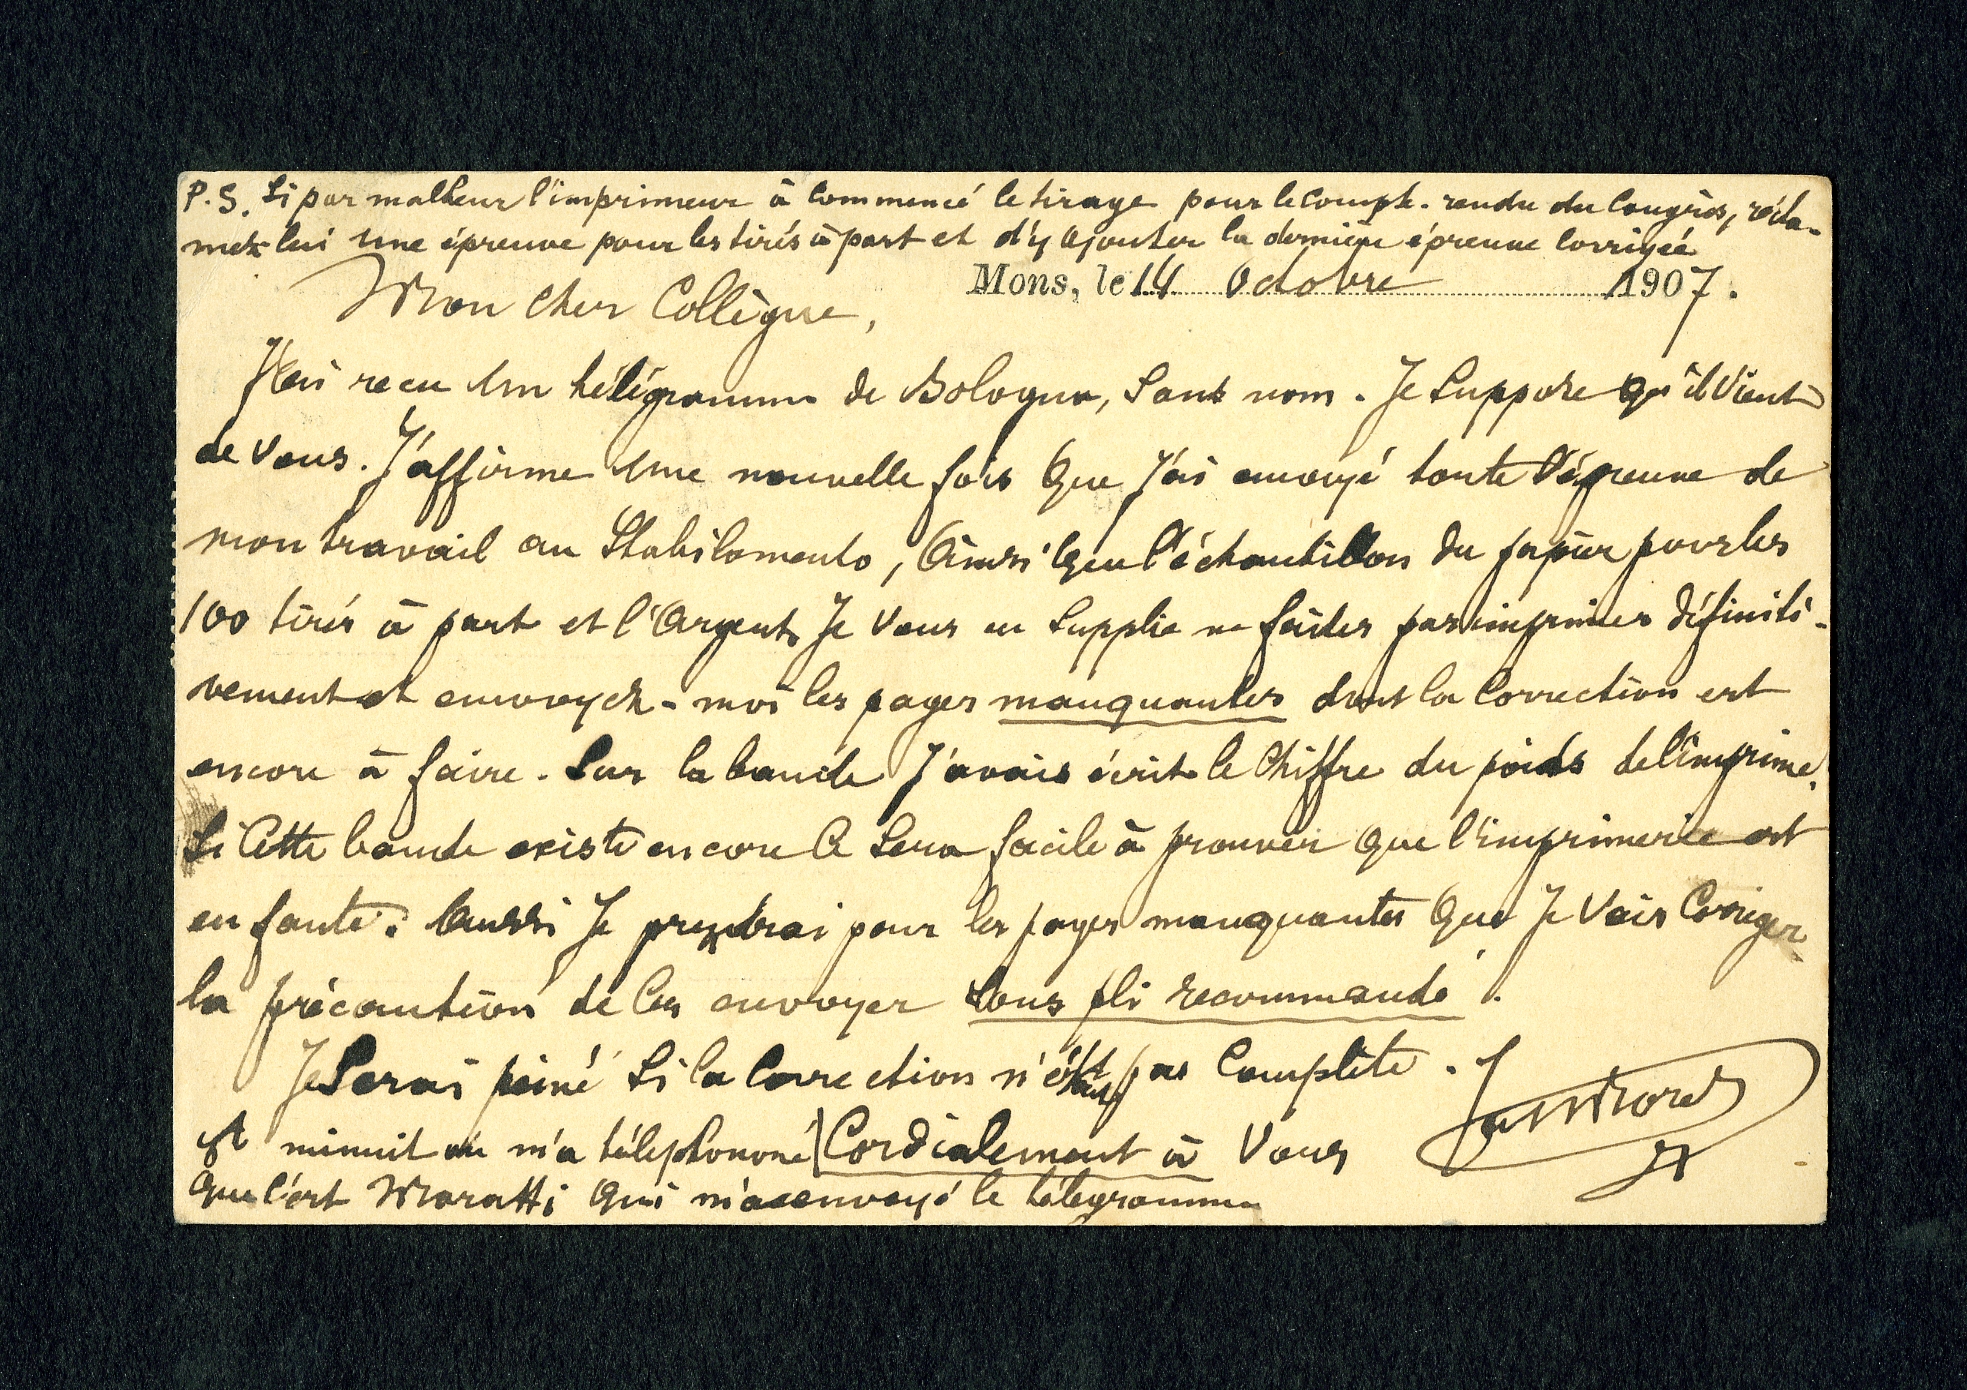 P.S. Si par malheur l'imprimeur à commencé le tirage pour le compte-rendu du Congrès, récla-
mez-lui une épreuve pour les tirés à part et d'y ajouter la dernière épreuve corrigée
Mons, le 14 Octobre 1907.
Mon cher Collègue,
J'ai reçu un télégramme de Bologna, sans nom. Je suppose qu'il vient
de vous. J'affirme une nouvelle fois que j'ai envoyé toute l'épreuve de
mon travail au Stabilomento, ainsi que l'échantillon du papier pour les
100 tirés à part et l'argent. Je vous en supplie ne faites pas imprimer définiti-
vement et envoyez-moi les pages manquantes dont la correction est
encore à faire. Sur la bande j'avais écrit le chiffre du poids de l'imprimé.
Si cette bande existe encore ce sera facile à prouver que l'imprimerie est
en faute. Aussi je prendrai pour les pages manquantes que je vais corriger
la précaution de les envoyer sous pli recommandé.
Je serai peiné si la correction n'était pas complète.
A minuit on m'a téléphoné Cordialement à vous
que c'est Moratti qui m'a envoyé le télégramme